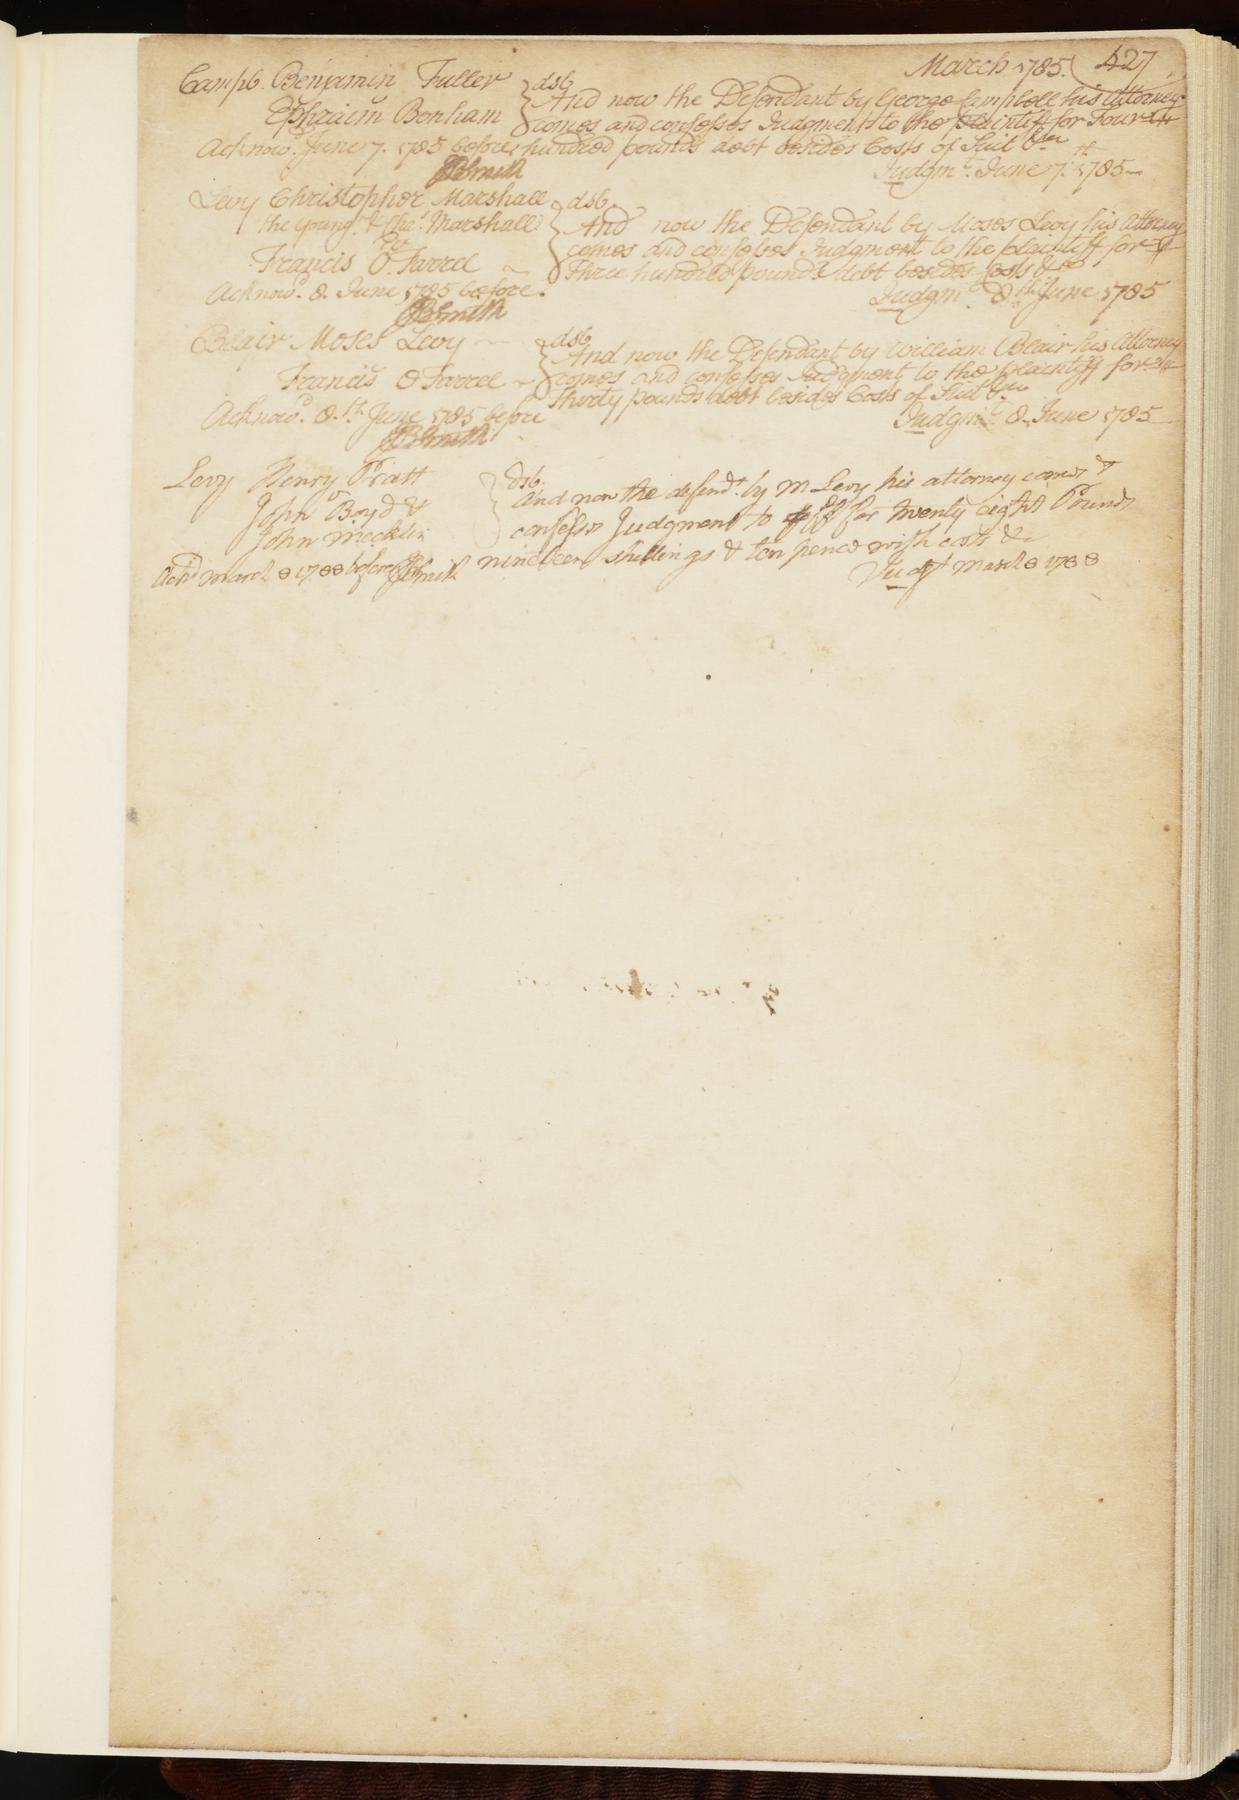 March 1785. (427
Campb. Benjamin Fuller } dsb
v
Ephraim Bonham And now the Defendant by George Campbell his Attorney
comes and confesses Judgment to the plaintiff for Four
Acknow. June 7. 1785 before hundred pounds debt besides Costs of Suit &ca
JBSmith Judgmt. June 7th 1785
Levy Christophor Marshall } dsb
the Young. & Chas. Marshall And now the Defendant by Moses Levy his Attorney
v comes and confesses Judgment to the plaintiff for
Francis O'Farrel Three hundred pounds debt besides Costs &ca
Acknowd. 8. June 1785 before. Judgmt. 8th June 1785
JBSmith
Blair Moses Levy } dsb
v And now the Defendant by William Blair his Attorney
Francis O Farrel comes and confesses Judgment to the plaintiff for
thirty pounds debt besides Costs of Suit &ca
Acknowd. 8.th June 1785 before Judgmt. 8. June 1785
JBSmith
Levy Henry Pratt } dsb.
v And now the defendt. by M Levy his attorney comes &
John Boyd & confesses Judgment to plff for twenty eight Pounds
John Mecklin
nineteen shillings & ten pence with costs &c
Ackd March 8 1788 before JBSmith Judgt March 8 1788